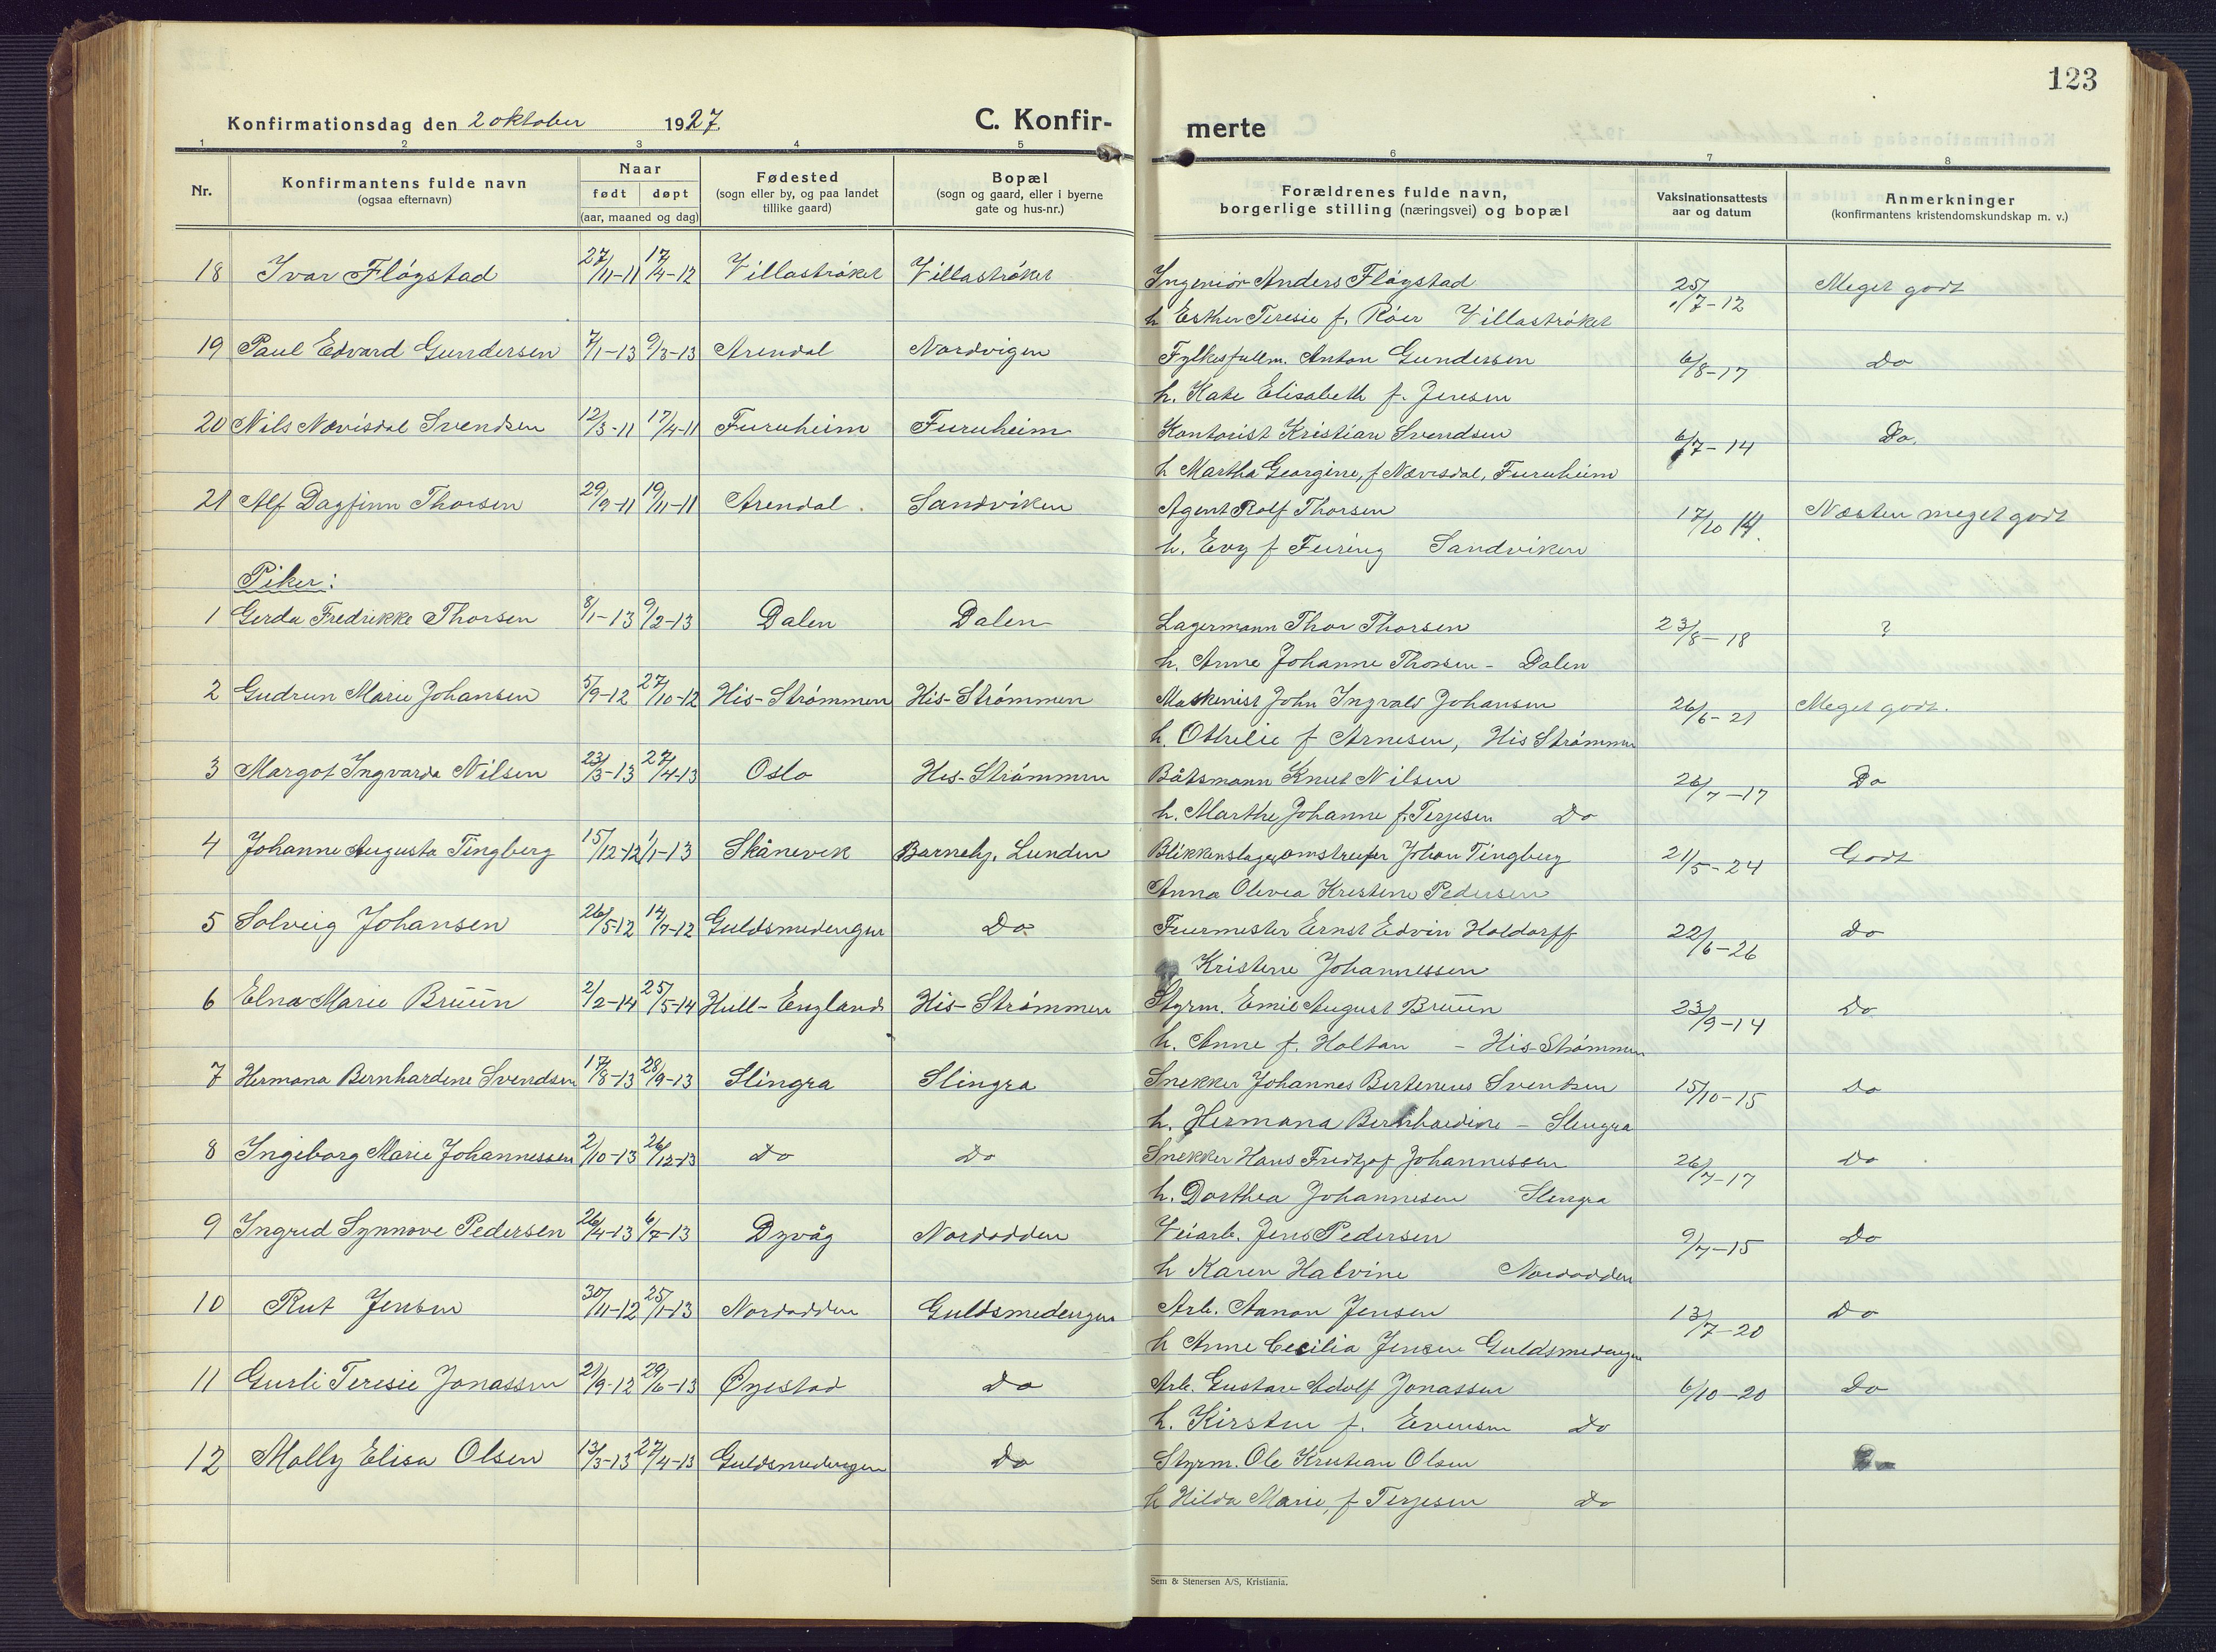 123
Konfirmationsdag den 2 oktober 1927. C. Konfir- merte
1 2 3 4 5 6 7 8
Nr. Konfirmantens fulde navn (ogsaa efternavn) Naar født døpt (aar, maaned og dag) Fødested (sogn eller by, og paa landet tillike gaard) Bopæl (sogn og gaard, eller i byerne gate og hus-nr.) Forældrenes fulde navn, borgerlige stilling (næringsvei) og bopæl Vaksinationsattests aar og datum Anmerkninger (konfirmantens kristendomskundskap m. v.)
18 Ivar Fløgstad 27/11-11 17/4-12 Villastrøket Villastrøket Ingeniør Anders Fløgstad 25/7-12 Meget godt
h Esther Teresie f. Røer Villastrøket
19 Paul Edvard Gundersen 7/1-13 9/3-13 Arendal Nordvigen Fylkesfullm. Anton Gundersen 6/8-17 Do
h. Kate Elisabeth f. Jensen
20 Nils Nævisdal Svendsen 12/3-11 17/4-11 Furuheim Furuheim Kontorist Kristian Svendsen 6/7-14 Do.
h Martha Georgine, f Nævesdal, Furuheim
21 Alf Dagfinn Thorsen 29/9-11 19/11-11 Arendal. Sandviken Agent Rolf Thorsen 17/10 14. Næsten meget godt
h. Evy f Feiring Sandviken
Piker:
1 Gerda Fredrikke Thorsen 8/1-13 9/2-13 Dalen Dalen Lagermann Thor Thorsen 23/8-18 ?
h. Anne Johanne Thorsen - Dalen
2 Gudrun Marie Johansen 5/9-12 27/10-12 His-Strømmen His-Strømmen Maskenist John Ingvald Johansen 26/6-21 Meget godt.
h. Othilie f Arnesen, His Strømmen
3 Margot Ingvarda Nilsen 23/3-13 27/4-13 Oslo His-Strømmen Båtsmann Knut Nilsen 26/7-17 Do
h. Marthe Johanne f. Terjesen Do
4 Johanne Augusta Tingberg 15/12-12 1/1-13 Skånevik Barnehj. Lunden Blikkenslager omstreifer Johan Tingberg 21/5-24 Godt
Anna Olevea Kristine Pedersen
5 Solveig Johansen 26/5-12 14/7-12 Guldsmedengen Do Ernst Edvin Holdorff 22/6-26 Do
Kristine Johannessen
6 Elna Marie Bruun 2/2-14 25/5-14 Hull-England His-Strømmen Styrm. Emil August Bruun 23/9-14 Do
h. Anne f. Holtan - His-Strømmen
7 Hermana Bernhardine Svendsen 17/8-13 28/9-13 Slingra Slingra Snekker Johannes Bertenius Svendsen 15/10-15 Do
h. Hermana Bernhardine - Slingra
8 Ingeborg Marie Johannessen 2/10-13 26/12-13 do Do Snekker Hans Fredtjof Johannessen 26/7-17 Do
h. Dorthea Johannesen Slengra
9 Ingrid Synnove Pedersen 26/4-13 6/7-13 Dyvåg Nordodden Veiarb. Jens Pedersen 9/7-15 Do
h Karen Halvine Nordodden
10 Rut Jensen 30/11-12 25/1-13 Nordodden Guldsmedengen Arb. Aanon Jensen 13/7-20 Do
h Anne Cecilia Jensen Guldsmedengen
11 Gurli Teresie Jonassen 21/9-12 29/6-13 Øyestad do Arb. Gustav Adolf Jonassen 6/10-20 Do
h. Kirsten f. Evensen Do
12 Molly Elisa Olsen 13/3-13 27/4-13 Guldsmedengen Do Styrm. Ole Kristian Olsen
h Hilda Marie, f Terjesen Do
Sem & Stenersen A/S, Kristiania.